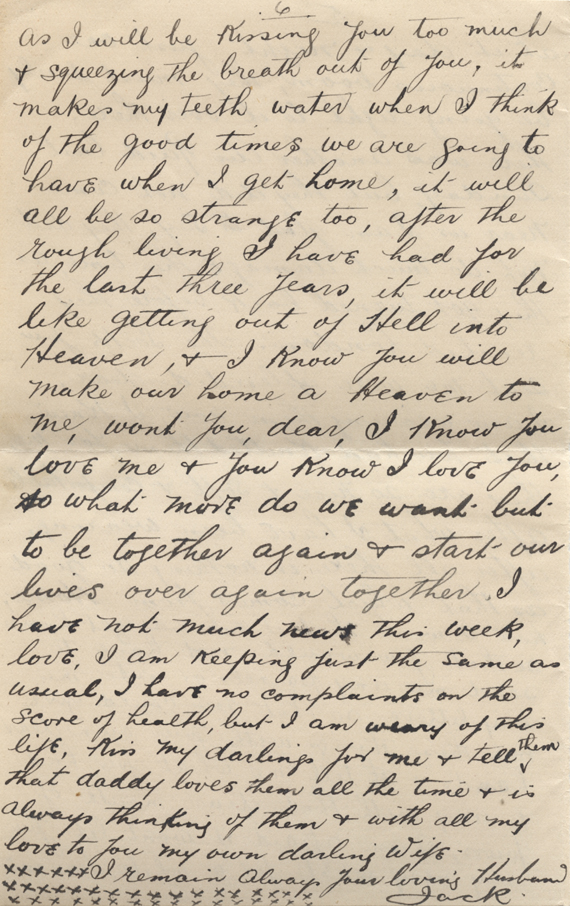 6
as I will be Kissing You too much
& squeezing the breath out of You, it
makes my teeth water when I think
of the good times we are going to
have when I get home, it will
all be so strange too, after the
rough living I have had for
the last three years, it will be
like getting out of Hell into
Heaven, & I Know You will
make our home a Heaven to
me, wont You, dear, I Know You
love me & You Know I love You,
so what more do we want but
to be together again & start our
lives over again together. I
have not much news this week,
love, I am Keeping just the same as
usual, I have no complaints on the
score of health, but I am weary of this
life, Kiss my darlings for me & tell them
that daddy loves them all the time & is
always thinking of them & with all my
love to You my own darling Wife.
xxxxxxx I remain Always Your loving Husband
xxxxxxxxxxxxxxxx Jack.
xxxxxxxxxxxxxxxx